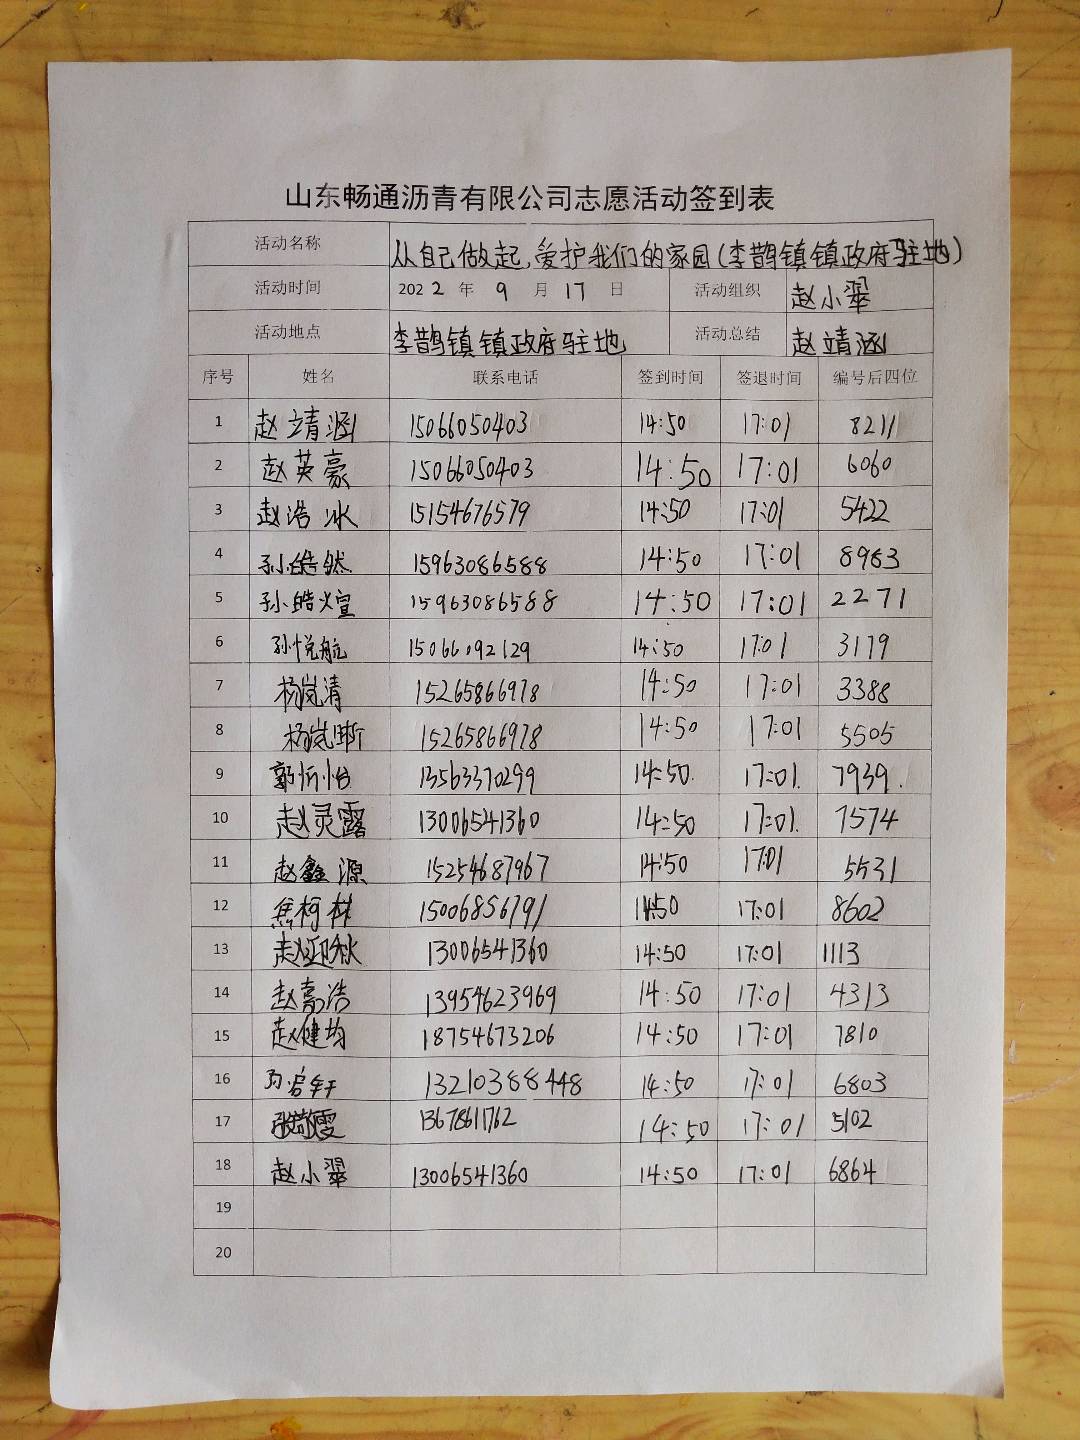 山东畅通沥青有限公司志愿活动签到表
活动名称 从自己做起,爱护我们的家园(李鹊镇镇政府驻地)
活动时间 2022 年 9 月 17 日 活动组织 赵小翠
活动地点 李鹊镇镇政府驻地 活动总结 赵靖涵
序号 姓名 联系电话 签到时间 签退时间 编号后四位
1 赵靖涵 15066050403 14:50 17:01 8211
2 赵英豪 15066050403 14:50 17:01 6060
3 赵浩冰 15154676579 14:50 17:01 5422
4 孙皓然 15963086588 14:50 17:01 8983
5 孙皓煊 15963086588 14:50 17:01 2271
6 孙悦航 15066092129 14:50 17:01 3179
7 杨岚清 15265866978 14:50 17:01 3388
8 杨岚晰 15265866978 14:50 17:01 5505
9 郭忻怡 13563370299 14:50 17:01 7939
10 赵灵露 13006541360 14:50 17:01 7574
11 赵鑫源 15254687967 14:50 17:01 5531
12 焦柯林 15006856791 14:50 17:01 8602
13 赵迎秋 13006541360 14:50 17:01 1113
14 赵嘉浩 13954623969 14:50 17:01 4313
15 赵健均 18754673206 14:50 17:01 7810
16 13210388448 14:50 17:01 6803
17 13678611762 14:50 17:01 5102
18 赵小翠 13006541360 14:50 17:01 6864
19
20